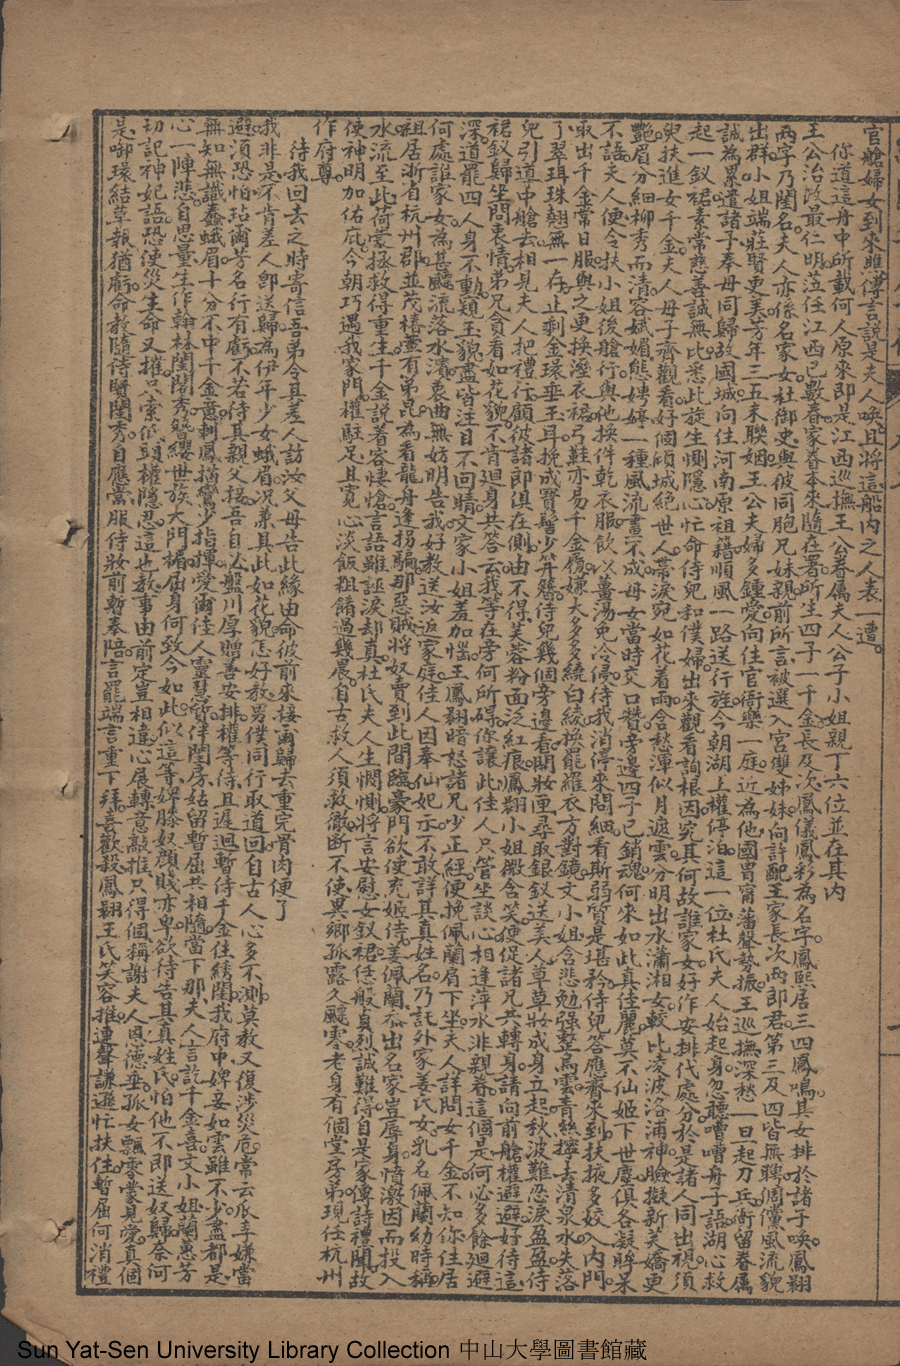 官艙婦女到來雎傳言說是夫人喚且將這船內之人表一遭
你道這舟中所載何人原來即是江西巡撫王公眷属夫人公子小姐親丁六位並在其内
王公治政最仁明涖任江西已數春家眷本來隨在署所生四子一千金長及次鳳儀鳳彩為名字鳳熙居三四鳳鳴其女排於諸子喚鳳翙
兩字乃閨名夫人亦係名家女杜御史與彼同胞兄妹親前所言被選入宮雙姊妹向許配王家長次兩郎君第三及四皆無聘倜儻風流貌
出群小姐端莊賢更美芳年三五未聯姻王公夫婦多鍾愛向住官衙樂一庭近為他國冑甯藩聲勢振王巡撫深愁一旦起刀兵衙留眷属
誠為累遣諸子奉母同歸故國城向住河南原祖籍順風一路送行旌今朝湖上權停泊這一位杜氏夫人始起身忽聽嘈嘈舟子語湖心救
起一釵裙素常慈善誠無比悉此旋生惻隱心忙命侍兒和僕婦出來觀看詢根因究其何故誰家女好作安排代處分於是諸人同出視須
臾扶進女千金夫人母子齊觀看好個傾城絕世人帶淚宛如花着雨含愁渾似月遮雲分明出水瀟湘女較比凌波洛浦神臉擬新芙嬌更
艷眉分細柳秀而清容嫵媚態娉婷一種風流畫不成母女當時交口讚旁邊四子已銷魂何來如此真佳麗莫不仙姬下世塵俱各凝眸呆
不語夫人便令扶小姐後艙行與他換件乾衣服飲以薑湯免冷侵待我消停來問細看斯弱質是堪矜侍兒答應齊來到扶掖多姣入內門
取出千金常日服與之更換溼衣裙弓鞋亦易千金履嫌大多多繞白綾換罷羅衣方對鏡文小姐含悲勉强整烏雲青絲擰去清泉水失落
了翠珥珠翹無一存止剩金環垂玉耳挽成寶髻少笄簪侍兒幾個旁邊看開妝匣尋取銀釵送美人草草妝成身立起秋波難忍淚盈盈侍
兒引道中艙去相見夫人把禮行顧彼諸郎俱在側由不得芙蓉粉面泛紅痕鳳翙小姐微含笑便促諸兄共轉身請向前艙權避避好待這
裙釵歸坐問衷情弟兄貪看如花貌不肯迴身共答云我等在旁何所碍你讓此佳人只管坐談心相逢萍水非親眷這個是何必多餘迴避
深道罷四人身不動覬玉貌盡皆注目不回睛文家小姐羞加惱王鳳翙暗怒諸兄少正經便挽佩蘭肩下坐夫人詳問女千金不知你住居
何處誰家女為甚飄流落水濱衷曲無妨明告我好教送汝返家庭佳人因奉仙妃示不敢詳其真姓名乃託外家姜氏女乳名佩蘭幼時稱
祖居浙省杭州郡並茂椿萱有弟昆為看龍舟逢拐騙那惡賊將奴賣到此間臨豪門欲使充姬侍姜佩蘭系出名家豈辱身憤激因而投入
水流至此荷蒙拯救得重生千金說着容悽愴言語雖誣淚却真杜氏夫人生憫惻將言安慰女釵裙恁般貞烈誠難得自是家傳詩禮聞故
使神明加佑庇今朝巧遇我家門權駐足且寬心淡飯粗餚過幾晨自古救人須救徹斷不使異鄉孤露久飄零老身有個堂房弟現任杭州
作府尊
待我回去之時寄信吾弟令其差人訪汝父母告此緣由命彼前來接爾歸去重完骨肉便了
我非是不肯差人即送歸為伊年少女蛾眉况兼其此如花貌怎好教男僕同行取道回自古人心多不測莫教又復涉災危常云瓜李嫌當
避須恐怕玷爾芳名行有虧不若侍其親父接吾自必盤川厚贈善安排權等待且遲迴暫侍千金住綉閨我府中婢妾如雲雖不少盡都是
無知無識蠢蛾眉十分不中千金意刺鳳描鸞少指揮愛爾佳人靈慧質伴閨房姑留暫屈共相隨當下那夫人言訖千金喜文小姐蘭蕙芳
心一陣悲自思量生作翰林閨閣秀簪纓世族大門楣屈身何致今如此似這等婢膝奴顏賤亦卑欲待告其真姓氏怕他不即送奴歸奈何
切記神妃語恐使災生命又摧只索低頭權隱忍這也教事由前定豈相違心展轉意敲推只得個稱謝夫人恩德垂孤女飄零蒙見愛真個
是啣環結草報猶虧命教隨侍賢閨秀自應當服侍妝前暫奉陪言罷端言重下拜喜歡殺鳳翙王氏笑容推連聲謙遜忙扶住暫屈何消禮
Sun Yat-Sen University Library Collection 中山大學圖書館藏